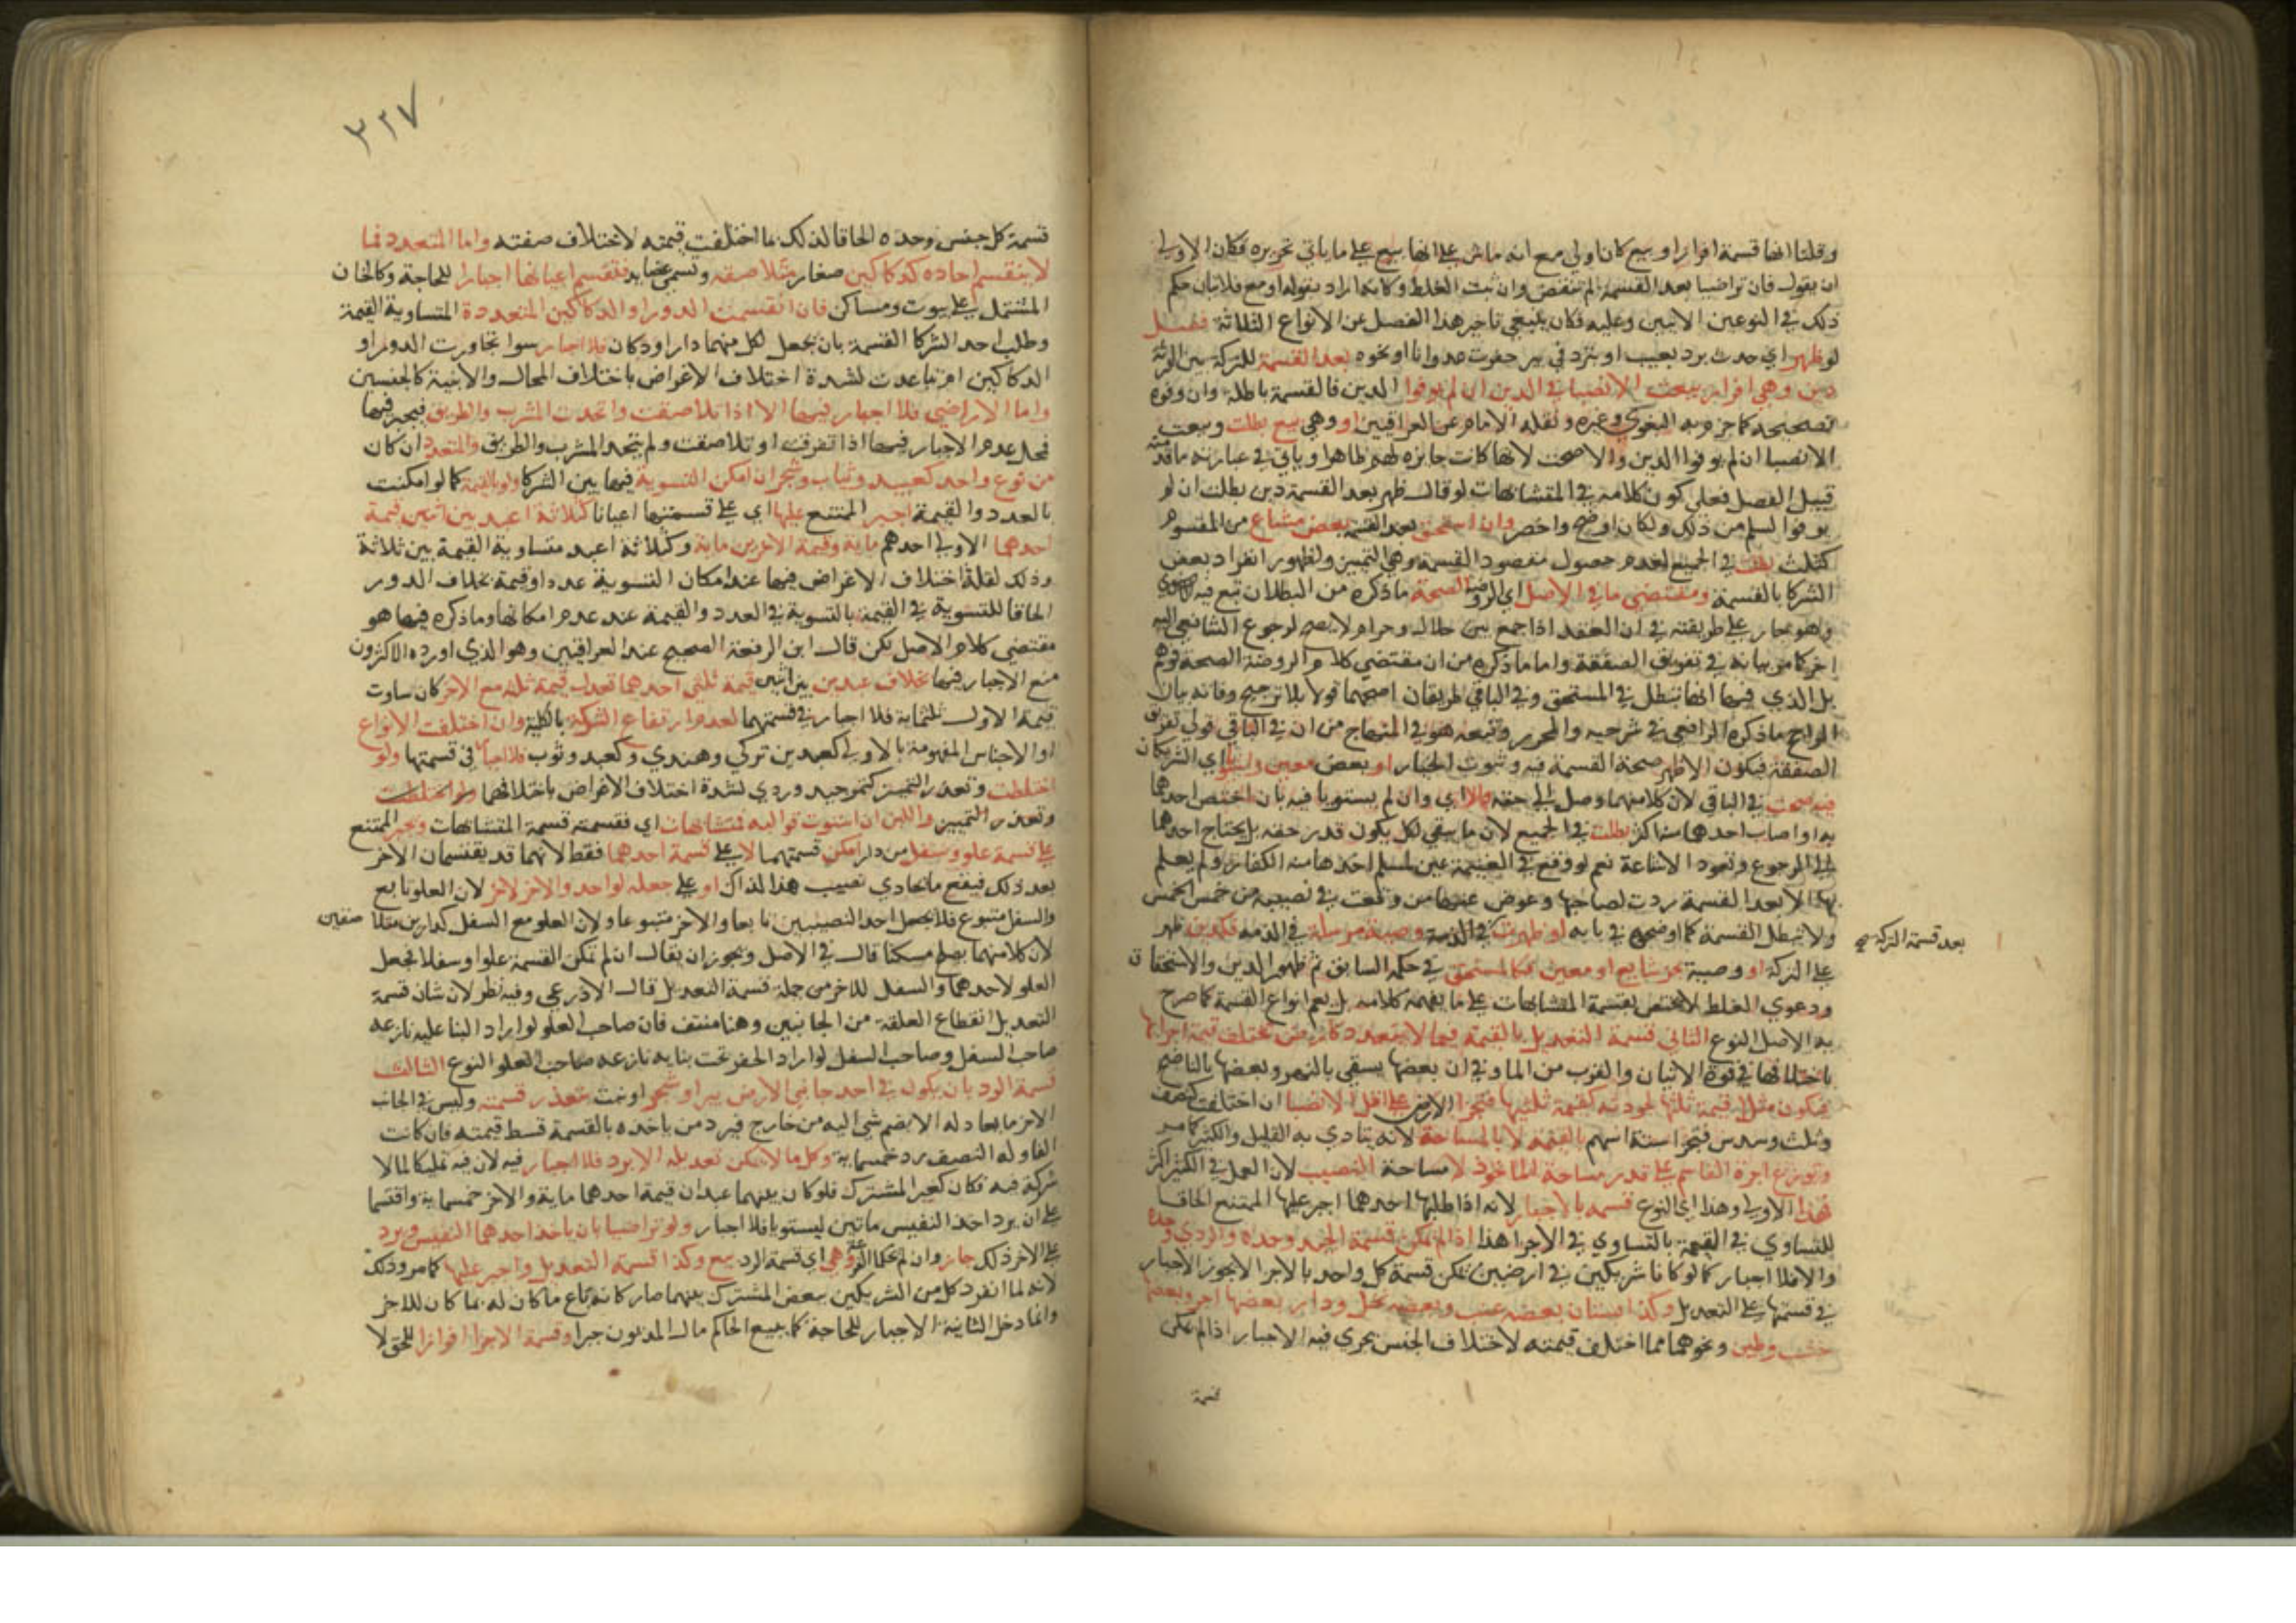 وقلنا انها قسمة افراز او بيع كان اولى مع انه ماش على انها بيع على ما ياتي تحريره فكان الاولى
ان يقول فان تراضيا بعد القسمة لم تنقض وان ثبت الغلط وكانه اراد بقوله او مع فلا بيان حكم
ذلك في النوعين الاتيين وعليه فكان ينبغي تاخير هذا الفصل عن الانواع الثلاثة فصل
لو ظهر اي حدث برد بعيب او بتردي في بير حفرت عدوانا او نحوه بعد القسمة للتركة بين الورثة
دين وهي افراز بيعت الانصبا في الدين ان لم يوفوا الدين فالقسمة باطلة وان وفوه
صحيحة كما جزم به البغوي وغيره ونقله الامام عن العراقيين او وهي بيع بطلت وبيعت
الانصبا ان لم يوفوا الدين والا صحت لانها كانت جايزة لهم ظاهرا وياتي في عبارته ما قدمته
قبيل الفصل فعلى كون كلامه في المتشابهات لو قال ظهر بعد القسمة دين بطلت ان لم
يوفوا لسلم من ذلك ولكان اوضح واخصر وان استحق بعد القسمة بعض مشاع من المقسوم
كثلث بطلت في الجميع لعدم حصول مقصود القسمة وهي التمييز ولظهور انفراد بعض
الشركا بالقسمة ومقتضى ما في الاصل اي الروضة الصحة ما ذكره من البطلان تبع فيه الاسنوي
وهو جار على طريقته في ان العقد اذا جمع بين حلال وحرام لا يصح لرجوع الشافعي اليه
اخرا كما مر بيانه في تفريق الصفقة واما ما ذكره من ان مقتضى كلام الروضة الصحة فوهم
بل الذي فيها انها تبطل في المستحق وفي الباقي طريقان اصحهما قولا بلا ترجيح وفاته بيان
الراجح ما ذكره الرافعي في شرحيه والمحرر وتبعه هو في المنهاج من ان في الباقي قولي تفريق
الصفقة فيكون الاظهر صحة القسمة فيه وثبوت الخيار او بعض معين واستويا اي الشريكان
فيه صحت في الباقي لان كلا منهما وصل الى حقه والا اي وان لم يستويا فيه بان اختص احدهما
به او اصاب احدهما منه اكثر بطلت في الجميع لان ما يبقى لكل يكون قدر حقه بل يحتاج احدهما
الى الرجوع وتعود الاشاعة نعم لو وقع في الغنيمة عين لمسلم اخذها منه الكفار ولم يعلم
بها الا بعد القسمة ردت لصاحبها وعوض عنها من وقعت في نصيبه من خمس الخمس
ولا تبطل القسمة كما اوضحوه في بابه لو ظهرت في الذمة وصية مرسلة في الذمة فكدين ظهر
بعد قسمة التركة صح
على التركة او وصية بجزء شايع او معين فكالمستحق في حكمه السابق ثم ظهور الدين والاستحقاق
ودعوي الغلط لا يختص بقسمة المتشابهات على ما يفهمه كلامه بل يعم انواع القسمة كما صرح
به الاصل النوع الثاني قسمة التعديل بالقيمة فيما لا يتعدد كارض تختلف قيمة اجزايها
باختلافها في قوة الانبات والقرب من الما وفي ان بعضها يسقى بالنهر وبعضها بالناضح
فيكون مثلا قيمة ثلثها لجودته كقيمة ثلثيها فتجزا الارض على اقل الانصبا ان اختلفت كنصف
وثلث وسدس فتجزا ستة اسهم بالقيمة لا بالمساحة لانه يتادى به القليل والكثير كما مر
وتوزع اجرة القاسم على قدر مساحة الماخوذ لا مساحة النصيب لان العمل في الكثير اكثر
فهذا الاولى وهذا اي النوع قسمه بالاجبار لانه اذا طلبها احدهما اجبر عليها الممتنع الحاقا
للتساوي في القيمة بالتساوي في الاجزا هذا اذا لم تمكن قسمة الجيد وحده والردي وحده
والا فلا اجبار كما لو كانا شريكين في ارضين تمكن قسمة كل واحد بالاجزا لا يجوز الاجبار
في قسمتها على التعديل وكذا بستان بعضه عنب وبعضه نخل ودار بعضها اجر وبعضها
خشب وطين ونحوهما مما اختلف قيمته لاختلاف الجنس يجري فيه الاجبار اذا لم تمكن
قسمة
٣٢٧
قسمة كل جنس وحده الحاقا لذلك بما اختلفت قيمته لاختلاف صفته واما المتعدد فما
لا ينقسم احاده كدكاكين صغار متلاصقة وتسمى عضايد فتقسم اعيانها اجبارا للحاجة وكالخان
المشتمل على بيوت ومساكن فان انقسمت الدور او الدكاكين المتعددة المتساوية القيمة
وطلب احد الشركا القسمة بان يجعل لكل منهما دارا او دكان فلا اجبار سوا تجاورت الدور او
الدكاكين ام تباعدت لشدة اختلاف الاغراض باختلاف المحال والابنية كالجنسين
واما الاراضي فلا اجبار فيها الا اذا تلاصقت واتحدت المشرب والطريق فيجبر فيها
فمحل عدم الاجبار فيها اذا تفرقت او تلاصقت ولم يتحد المشرب والطريق والمتعدد ان كان
من نوع واحد كعبيد وثياب وشجر ان امكن التسوية فيها بين الشركا ولو بالقيمة كما لو امكنت
بالعدد والقيمة اجبر الممتنع عليها اي على قسمتها اعيانا كثلاثة اعبد بين اثنين قيمة
احدهما الاولى احدهم ماية وقيمة الاخرين ماية وكثلاثة اعبد متساوية القيمة بين ثلاثة
وذلك لقلة اختلاف الاغراض فيها عند امكان التسوية عددا وقيمة بخلاف الدور
الحاقا للتسوية في القيمة بالتسوية في العدد والقيمة عند عدم امكانها وما ذكره فيها هو
مقتضى كلام الاصل لكن قال ابن الرفعة الصحيح عند العراقيين وهو الذي اورده الاكثرون
منع الاجبار فيها بخلاف عبدين بين اثنين قيمة ثلثي احدهما تعدل قيمة ثلثه مع الاخر كان ساوت
قيمة الاول ثلثماية فلا اجبار في قسمتهما لعدم ارتفاع الشركة بالكلية وان اختلفت الانواع
او الاجناس المفهومة بالاولى كعبدين تركي وهندي وكعبد وثوب فلا اجبار في قسمتها ولو
اختلطت وتعذر التمييز كتمر جيد وردي لشدة اختلاف الاغراض باختلافهما ولو اختلطت
وتعذر التمييز واللبن ان استوت قوالبه فمتشابهات اي فقسمته قسمة المتشابهات ويجبر الممتنع
على قسمة علو وسفل من دار امكن قسمتهما لا على قسمة احدهما فقط لانهما قد يقتسمان الاخر
بعد ذلك فيقع ما يحاذي نصيب هذا لذاك او على جعله لواحد والاخر لاخر لان العلو تابع
والسفل متبوع فلا يجعل احد النصيبين تابعا والاخر متبوعا ولان العلو مع السفل كدارين متلاصقتين
لان كلا منهما يصلح مسكنا قال في الاصل ويجوز ان يقال ان لم تمكن القسمة علوا وسفلا بجعل
العلو لاحدهما والسفل للاخر من جملة قسمة التعديل قال الاذرعي وفيه نظر لان شان قسمة
التعديل انقطاع العلقة من الجانبين وهنا منتف فان صاحب العلو لو اراد البنا عليه نازعه
صاحب السفل وصاحب السفل لو اراد الحفر تحت بنايه نازعه صاحب العلو النوع الثالث
قسمة الرد بان يكون في احد جانبي الارض بير او شجر او بيت تتعذر قسمته وليس في الجانب
الاخر ما يعادله الا بضم شي اليه من خارج فيرد من ياخذه بالقسمة قسط قيمته فان كانت
الفا وله النصف رد خمسماية وكل ما لا يمكن تعديله الا برد فلا اجبار فيه لان فيه تمليكا لما لا
شركة فيه فكان كغير المشترك فلو كان بينهما عبدان قيمة احدهما ماية والاخر خمسماية واقتسما
على ان يرد اخذ النفيس ماتين ليستويا فلا اجبار ولو تراضيا بان ياخذ احدهما النفيس ويرد
على الاخر ذلك جاز وان لم يحكما القرعة وهي اي قسمة الرد بيع وكذا قسمة التعديل واجبر عليها كما مر وذلك
لانه لما انفرد كل من الشريكين ببعض المشترك بينهما صار كانه باع ما كان له بما كان للاخر
وانما دخل الثانية الاجبار للحاجة كما يبيع الحاكم مال المديون جبرا وقسمة الاجزا افرازا للحق لا